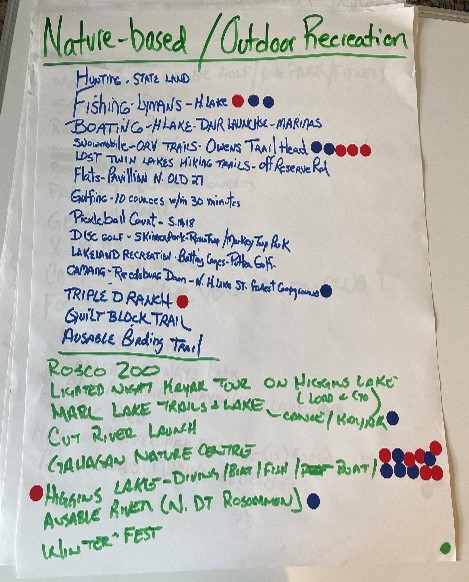 Nature-based / Outdoor Recreation
HUNTING - STATE LAND
Fishing - LYMANS - H. LAKE
BOATING - H LAKE - DNR LAUNCHSE - MARINAS
SNOWMOBILE - ORV TRAILS - OWENS Trail Head
LOST TWIN LAKES HIKING TRAILS - off Reserve Rd
Flats - Pavillian N. OLD 27
Golfing - 10 courses w/in 30 minutes
Pickleball Court - S. M18
DISC GOLF - Skinner Park - / Markey Twp Park
LAKELAND RECREATION - Batting Cages - Putter Golf
CAMPING - Reedsburg Dam - N. H. Lake St. Forest Campground
TRIPLE D RANCH
QUILT BLOCK TRAIL
AUSABLE Birding Trail
ROSCO ZOO
LIGHTED NIGHT KAYAK TOUR ON HIGGINS LAKE
MARL LAKE TRAILS & LAKE - CANOE / KAYAK ( LOAD & GO
CUT RIVER LAUNCH
GAHAGAN NATURE CENTRE
HIGGINS LAKE - DIVING / BOAT / FISH / BOAT /
AUSABLE RIVER (N. DT ROSCOMMON)
WINTER FEST